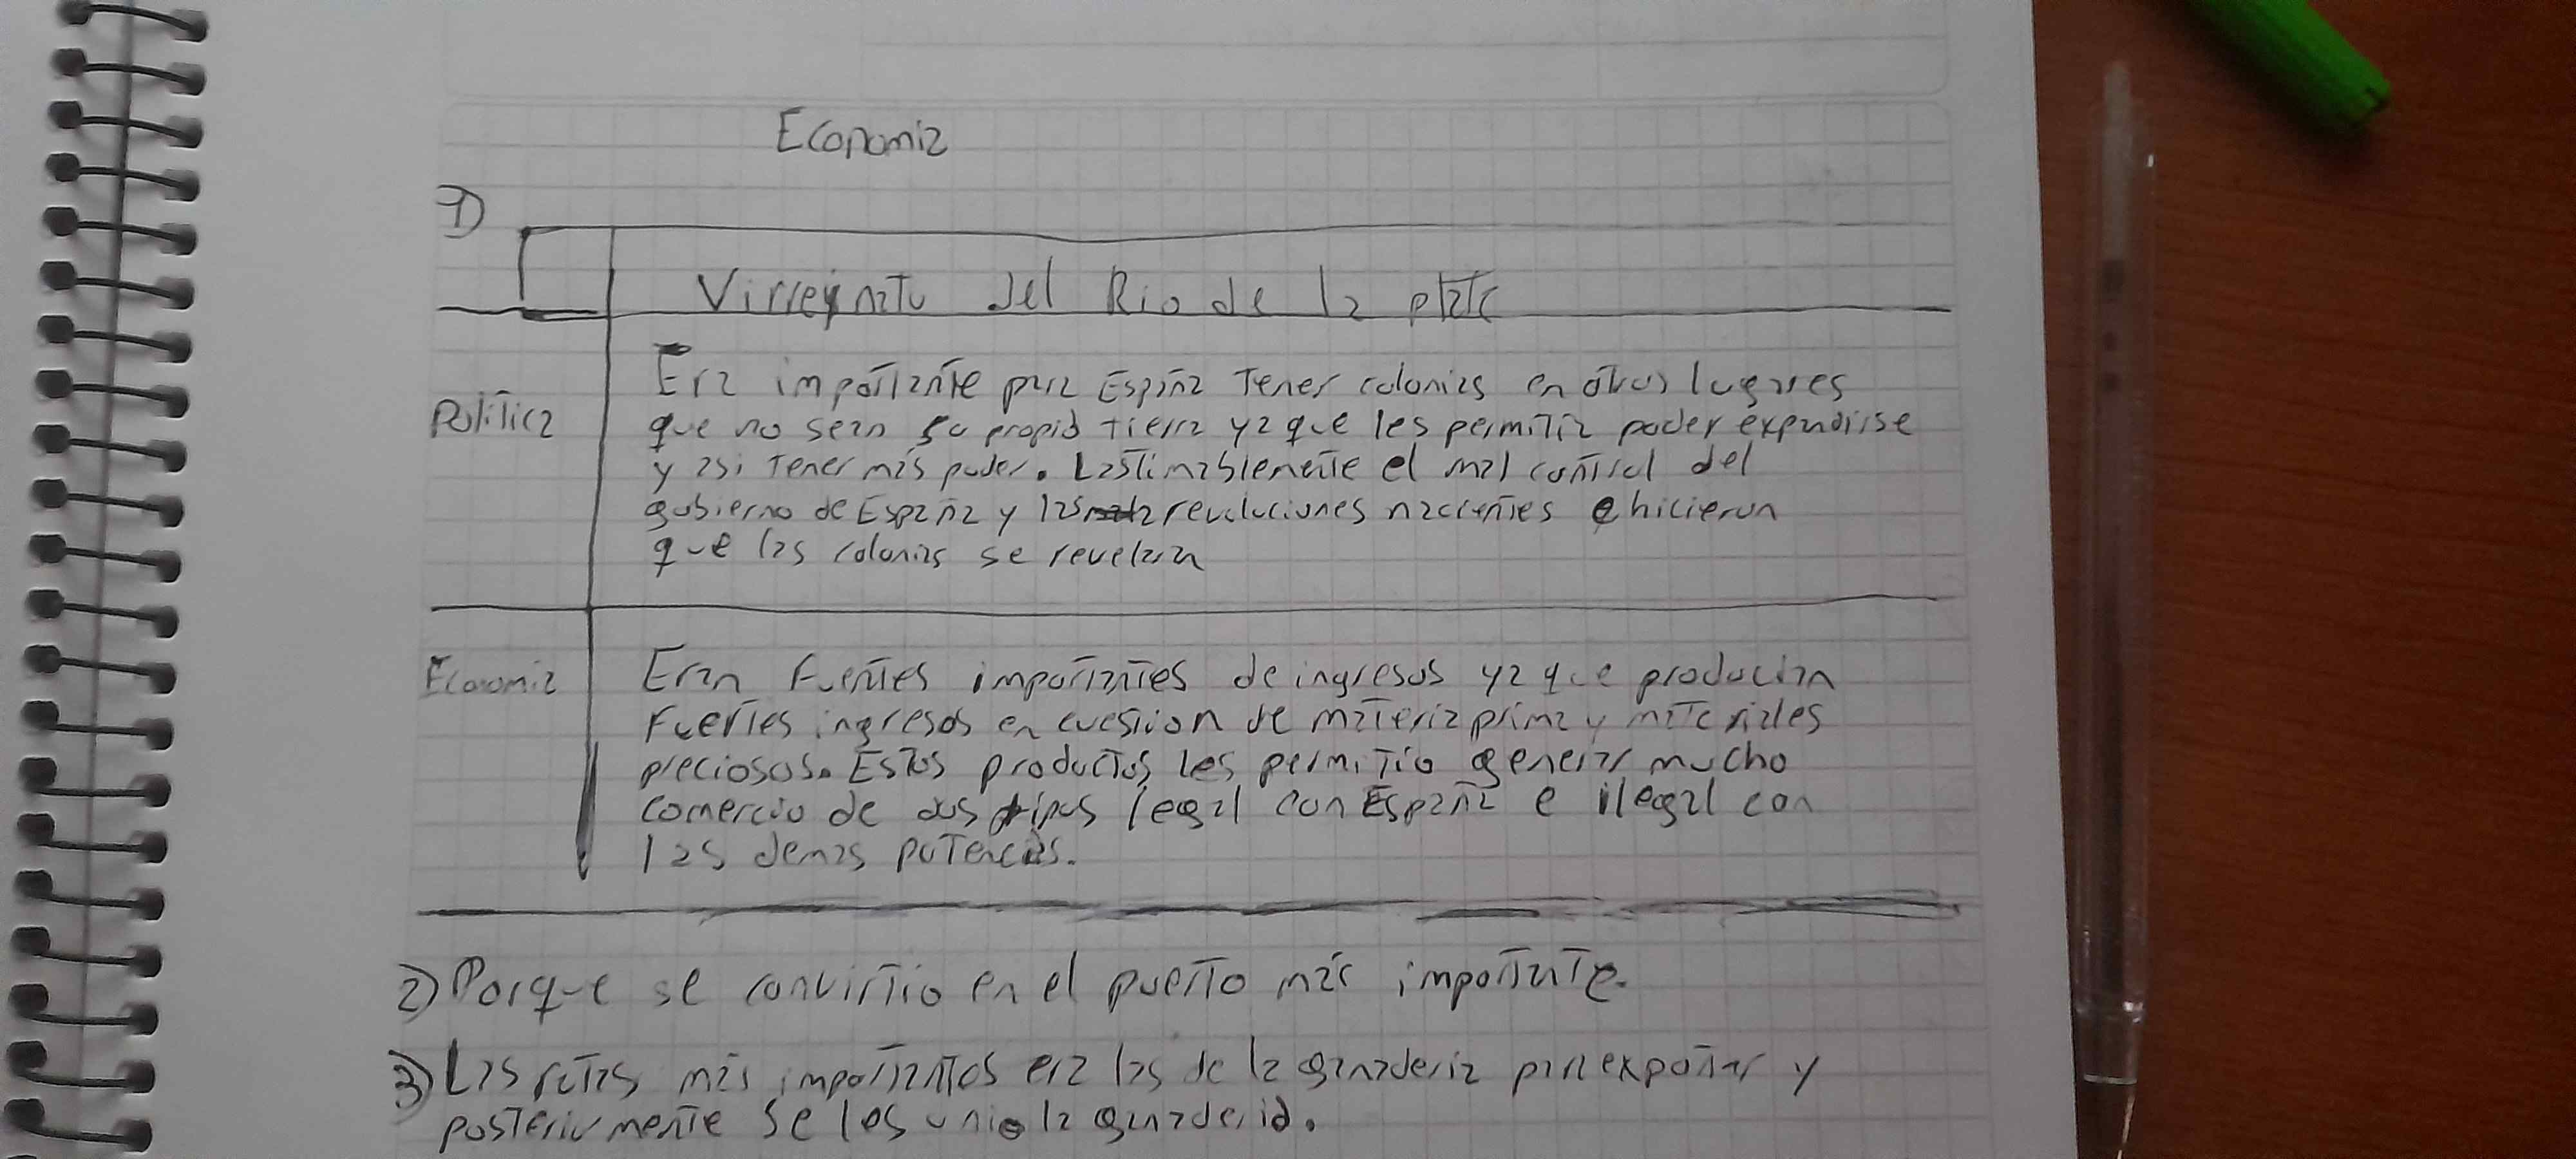 Economia
1)
Virreynato del Rio de la plata
Politica
Era importante para España tener colonias en otros lugares
que no sean su propio tierra ya que les permitia poder expandirse
y asi tener más poder. Lastimablemente el mal control del
gobierno de España y las revoluciones nacientes hicieron
que las colonias se revelaran
Economia
Eran fuentes importantes de ingresos ya que producian
fuertes ingresos en cuestion de materia prima y materiales
preciosos. Estos productos les permitio generar mucho
comercio de dos tipos legal con España e ilegal con
las demas potencias.
2) Porque se convirtio en el puerto más importante.
3) Las rutas más importantes era las de la ganaderia para exportar y
posteriormente se les unio la ganaderia.